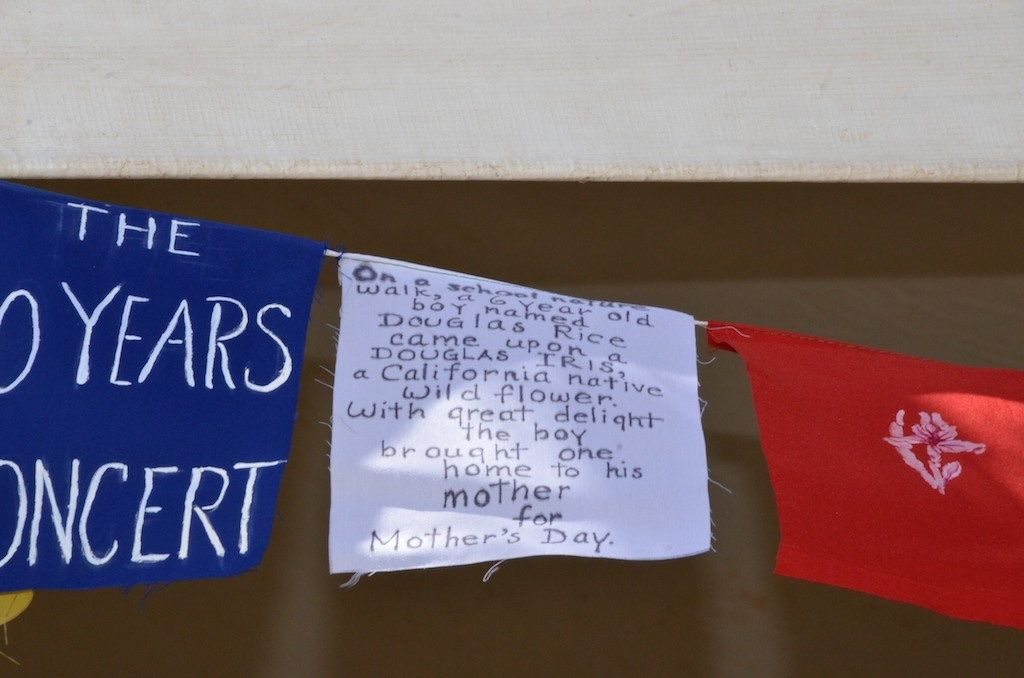 THE
YEARS
ONCERT
On a school nature
walk, a 6 year old
boy named
DOUGlas Rice
came upon a
DOUGLAS IRIS,
a California native
wild flower.
With great delight
the boy
brought one
home to his
mother
for
Mother's Day.